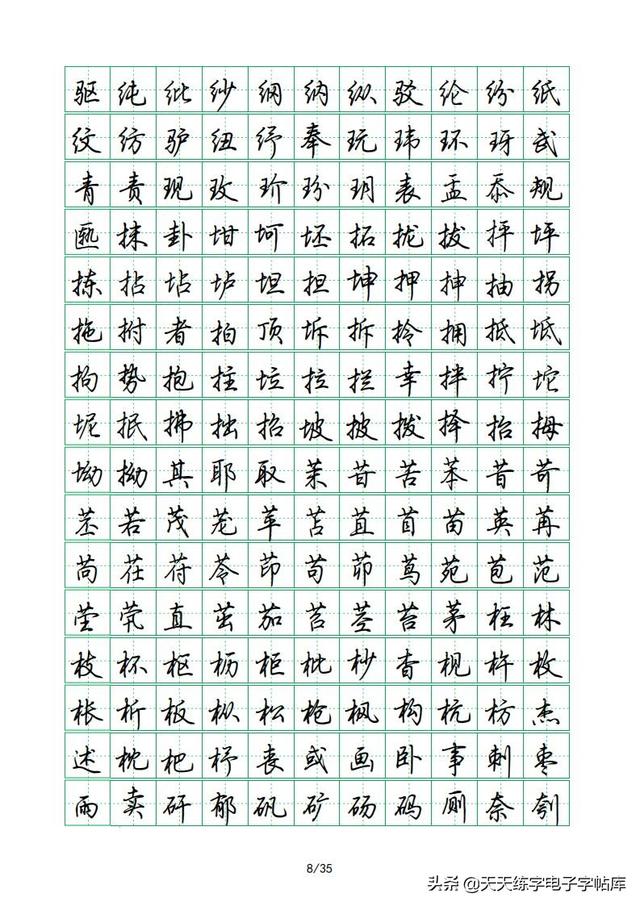 驱纯纰纱纲纳纵驳纶纷纸
纹纺驴纽纾奉玩玮环玡武
青责现玫玠玢玥表盂忝规
匦抹卦坩坷坯拓拢拔抨坪
拣拈坫垆坦担坤押抻抽拐
拖拊者拍顶坼拆拎拥抵坻
拘势抱拄垃拉拦幸拌拧坨
坭抿拂拙招坡披拨择抬拇
坳拗其耶取茉苷苦苯昔苛
苤若茂茏苹苫苴苜苗英苒
苘茌苻苓茚苟茆茑苑苞范
茔茕直茁茄苕茎苔茅枉林
枝杯枢枥柜枇杪杳枧杵枚
枨析板枞松枪枫构杭枋杰
述枕杷杼丧或画卧事刺枣
雨卖矸郁矾矿砀码厕奈刳
8/35
头条 @天天练字电子字帖库